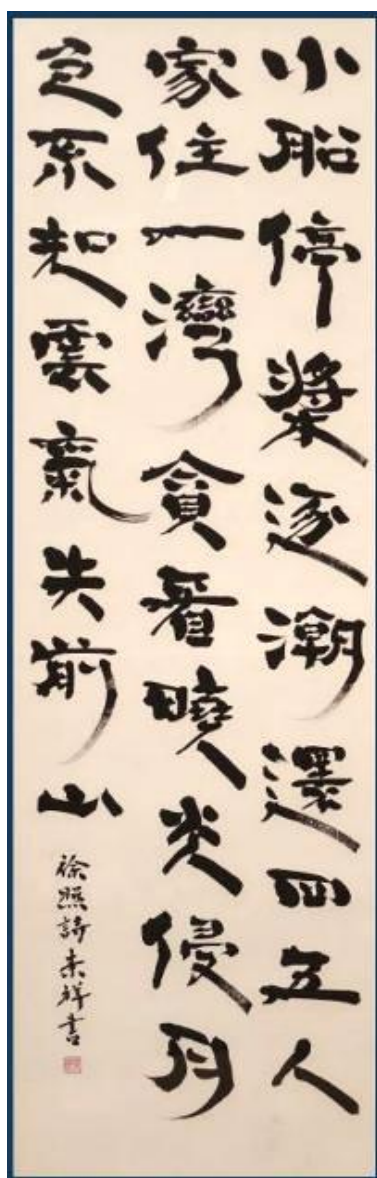 小船停槳逐潮還四五人
家住一灣貪看曉光侵月
色不知雲氣失前山
徐照詩未祥書